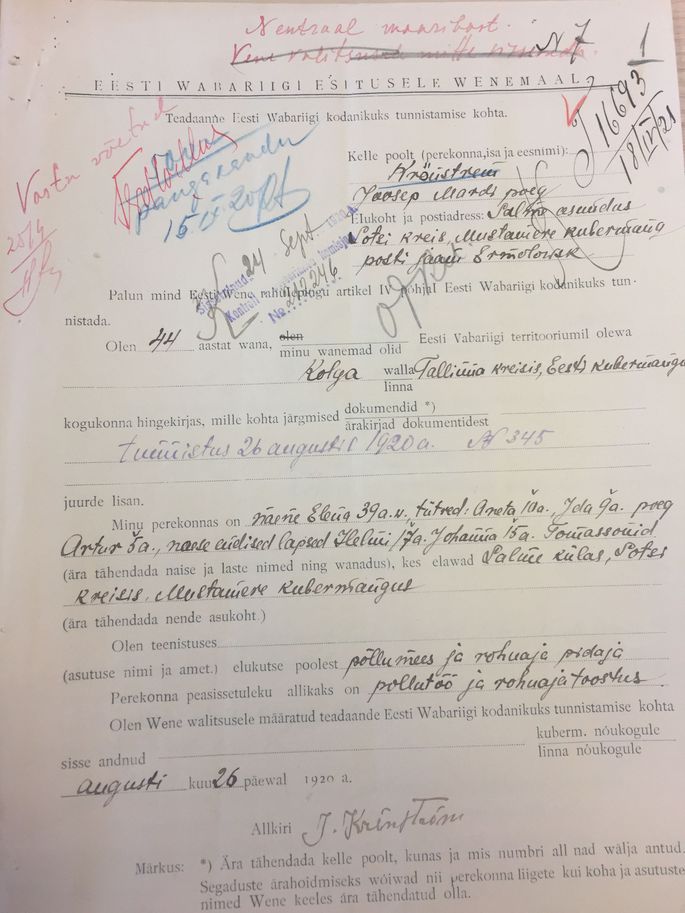 Neutraal maaribast.
Vene valitsusele mitte
N 7
1
EESTI WABARIIGI ESITUSELE WENEMAAL
16693
18/IV 21
Teadaanne Eesti Wabariigi kodanikuks tunnistamise kohta.
Vastu võetud
pangaraandu
15 IX 20
Kelle poolt (perekonna, isa ja eesnimi):
Kröustrem
Joosep Mardi poeg
Elukoht ja postiadress: Salme asundus
Sotsi kreis, Mustamere kubermang
posti jaam Ermolovsk
24 Sept
№ 212246
Palun mind Eesti-Wene rahulepingu artikel IV põhjal Eesti Wabariigi kodanikuks tun-
nistada.
Olen 44 aastat wana, olen
minu wanemad olid Eesti Vabariigi territooriumil olewa
Kolga walla
linna Tallinna kreisis, Eesti kubermangu
kogukonna hingekirjas, mille kohta järgmised dokumendid *)
ärakirjad dokumentidest
tunnistus 26 augustil 1920 a. № 345
juurde lisan.
Minu perekonnas on naene Elena 39 a. v., tütred: Aneta 10 a., Ida 9 a. poeg
Artur 5 a., naese endised lapsed Helmi 17 a. Johanna 15 a. Tomassonid
(ära tähendada naise ja laste nimed ning wanadus), kes elawad Salme külas, Sotsi
kreisis. Mustamere kubermangus
(ära tähendada nende asukoht.)
Olen teenistuses
(asutuse nimi ja amet.) elukutse poolest põllumees ja rohuaja pidaja
Perekonna peasissetuleku allikaks on põllutöö ja rohuajatoostus.
Olen Wene walitsusele määratud teadaande Eesti Wabariigi kodanikuks tunnistamise kohta
sisse andnud kuberm. nõukogule
linna nõukogule
augusti kuu 26 päewal 1920 a.
Allkiri J. Krönström
Märkus: *) Ära tähendada kelle poolt, kunas ja mis numbri all nad wälja antud.
Segaduste ärahoidmiseks wõiwad nii perekonna liigete kui koha ja asutuste
nimed Wene keeles ära tähendatud olla.